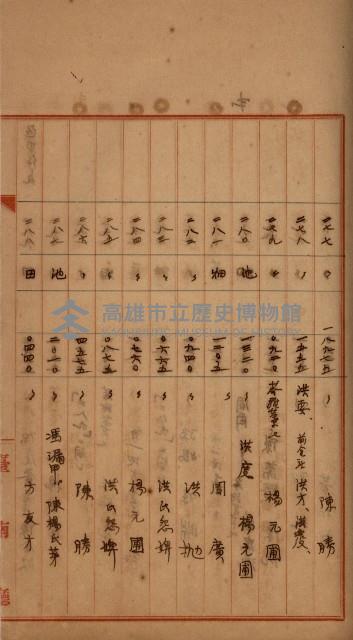 二七七 〃 一八九七五 〃 陳勝
二七八 〃 一五五五 洪要、前金社 洪才、洪慶、
二七九 〃 楊元圃
二八〇 池 一三二〇 〃 洪度 楊元圃
二八一 畑 一二〇五 〃 周廣
二八二 〃 〃 洪抛
二八三 〃 〇六六五 〃 洪氏怨婢
二八四 〃 〇九六〇 〃 楊元圃
二八五 〃 〇八七五 〃 洪氏怨婢
二八六 〃 四五七五 〃 陳勝
二八七 池 二〇一〇 〃 馮漏甲、陳楊氏茅
二八八 田 〇四四〇 〃 方友才
臺南廳
高雄市立歷史博物館
KAOHSIUNG MUSEUM OF HISTORY